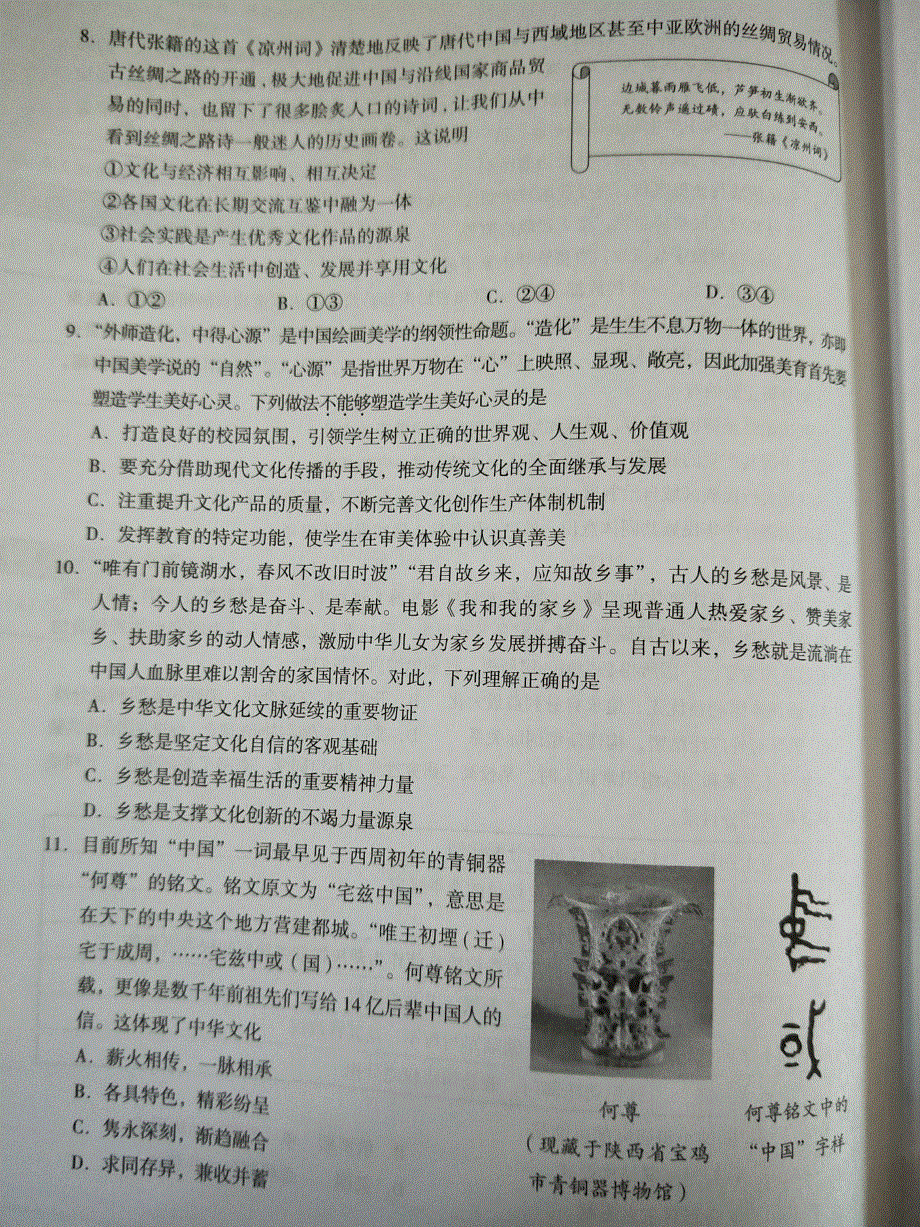 8. 唐代张籍的这首《凉州词》清楚地反映了唐代中国与西域地区甚至中亚欧洲的丝绸贸易情况。
古丝绸之路的开通，极大地促进中国与沿线国家商品贸
易的同时，也留下了很多脍炙人口的诗词，让我们从中
看到丝绸之路诗一般迷人的历史画卷。这说明
边城暮雨雁飞低，芦笋初生渐欲齐。
无数铃声遥过碛，应驮白练到安西。
——张籍《凉州词》
①文化与经济相互影响、相互决定
②各国文化在长期交流互鉴中融为一体
③社会实践是产生优秀文化作品的源泉
④人们在社会生活中创造、发展并享用文化
A. ①② B. ①③ C. ②④ D. ③④
9. “外师造化，中得心源”是中国绘画美学的纲领性命题。“造化”是生生不息万物一体的世界，亦即
中国美学说的“自然”。“心源”是指世界万物在“心”上映照、显现、敞亮，因此加强美育首先要
塑造学生美好心灵。下列做法不能够塑造学生美好心灵的是
A. 打造良好的校园氛围，引领学生树立正确的世界观、人生观、价值观
B. 要充分借助现代文化传播的手段，推动传统文化的全面继承与发展
C. 注重提升文化产品的质量，不断完善文化创作生产体制机制
D. 发挥教育的特定功能，使学生在审美体验中认识真善美
10. “唯有门前镜湖水，春风不改旧时波”“君自故乡来，应知故乡事”，古人的乡愁是风景、是
人情；今人的乡愁是奋斗、是奉献。电影《我和我的家乡》呈现普通人热爱家乡、赞美家
乡、扶助家乡的动人情感，激励中华儿女为家乡发展拼搏奋斗。自古以来，乡愁就是流淌在
中国人血脉里难以割舍的家国情怀。对此，下列理解正确的是
A. 乡愁是中华文化文脉延续的重要物证
B. 乡愁是坚定文化自信的客观基础
C. 乡愁是创造幸福生活的重要精神力量
D. 乡愁是支撑文化创新的不竭力量源泉
11. 目前所知“中国”一词最早见于西周初年的青铜器
“何尊”的铭文。铭文原文为“宅兹中国”，意思是
在天下的中央这个地方营建都城。“唯王初堙（迁）
宅于成周，……宅兹中或（国）……”。何尊铭文所
载，更像是数千年前祖先们写给14亿后辈中国人的
信。这体现了中华文化
A. 薪火相传，一脉相承
B. 各具特色，精彩纷呈
C. 隽永深刻，渐趋融合
D. 求同存异，兼收并蓄
何尊
（现藏于陕西省宝鸡
市青铜器博物馆）
何尊铭文中的
“中国”字样